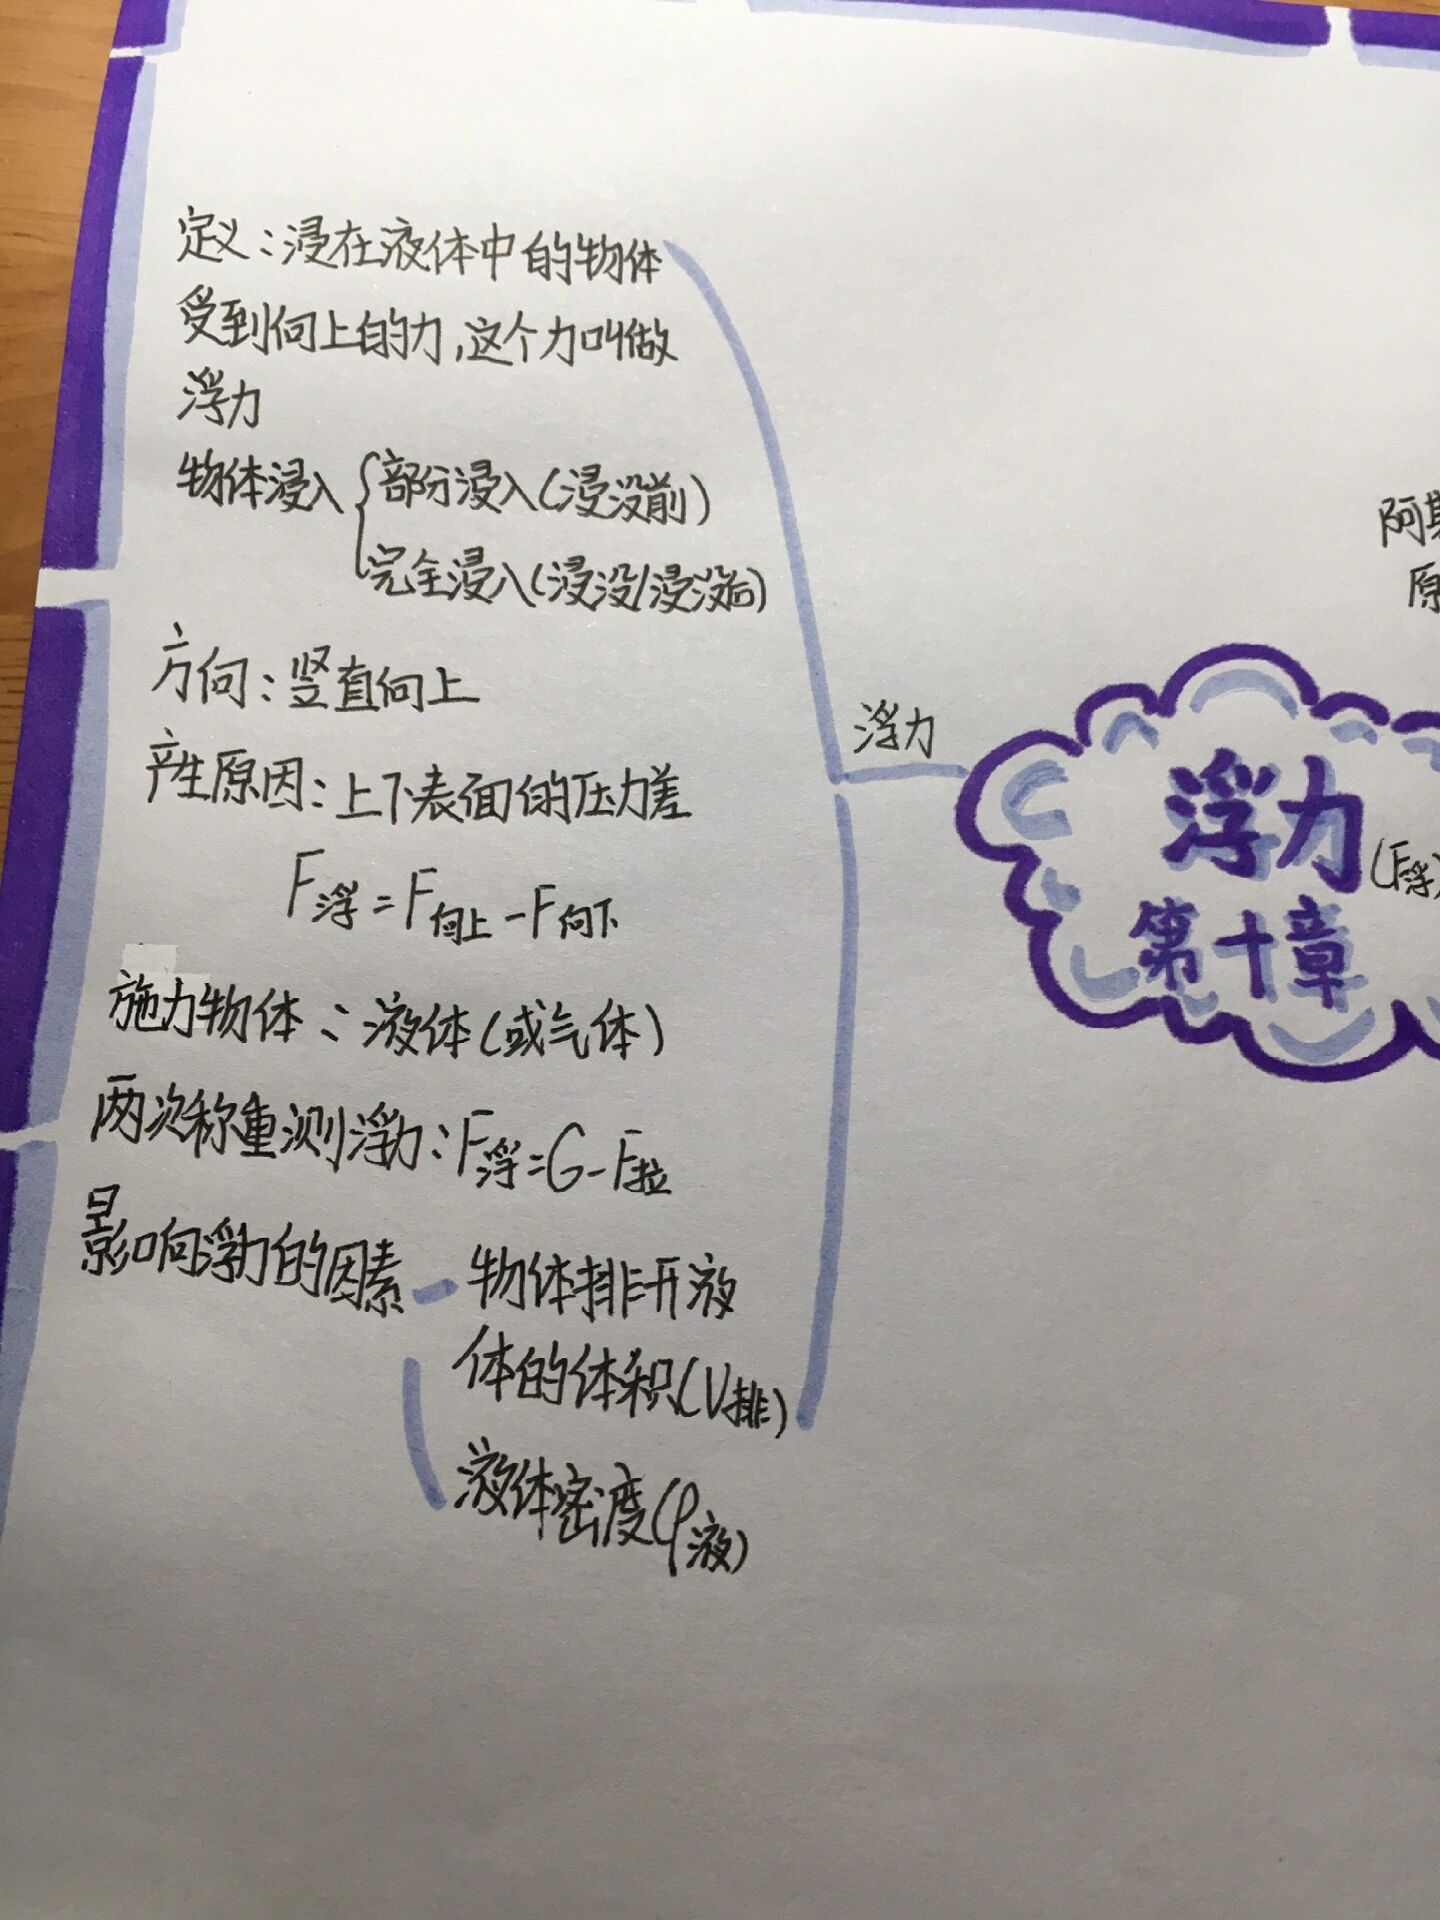 定义：浸在液体中的物体
受到向上的力,这个力叫做
浮力
物体浸入{部分浸入(浸没前)
完全浸入(浸没/浸没后)
方向：竖直向上
产生原因：上下表面的压力差
F浮=F向上-F向下
施力物体：液体(或气体)
两次称重测浮力：F浮=G-F拉
影响浮力的因素
物体排开液
体的体积(V排)
液体密度(ρ液)
浮力
浮力
(F浮)
第十章
阿
原